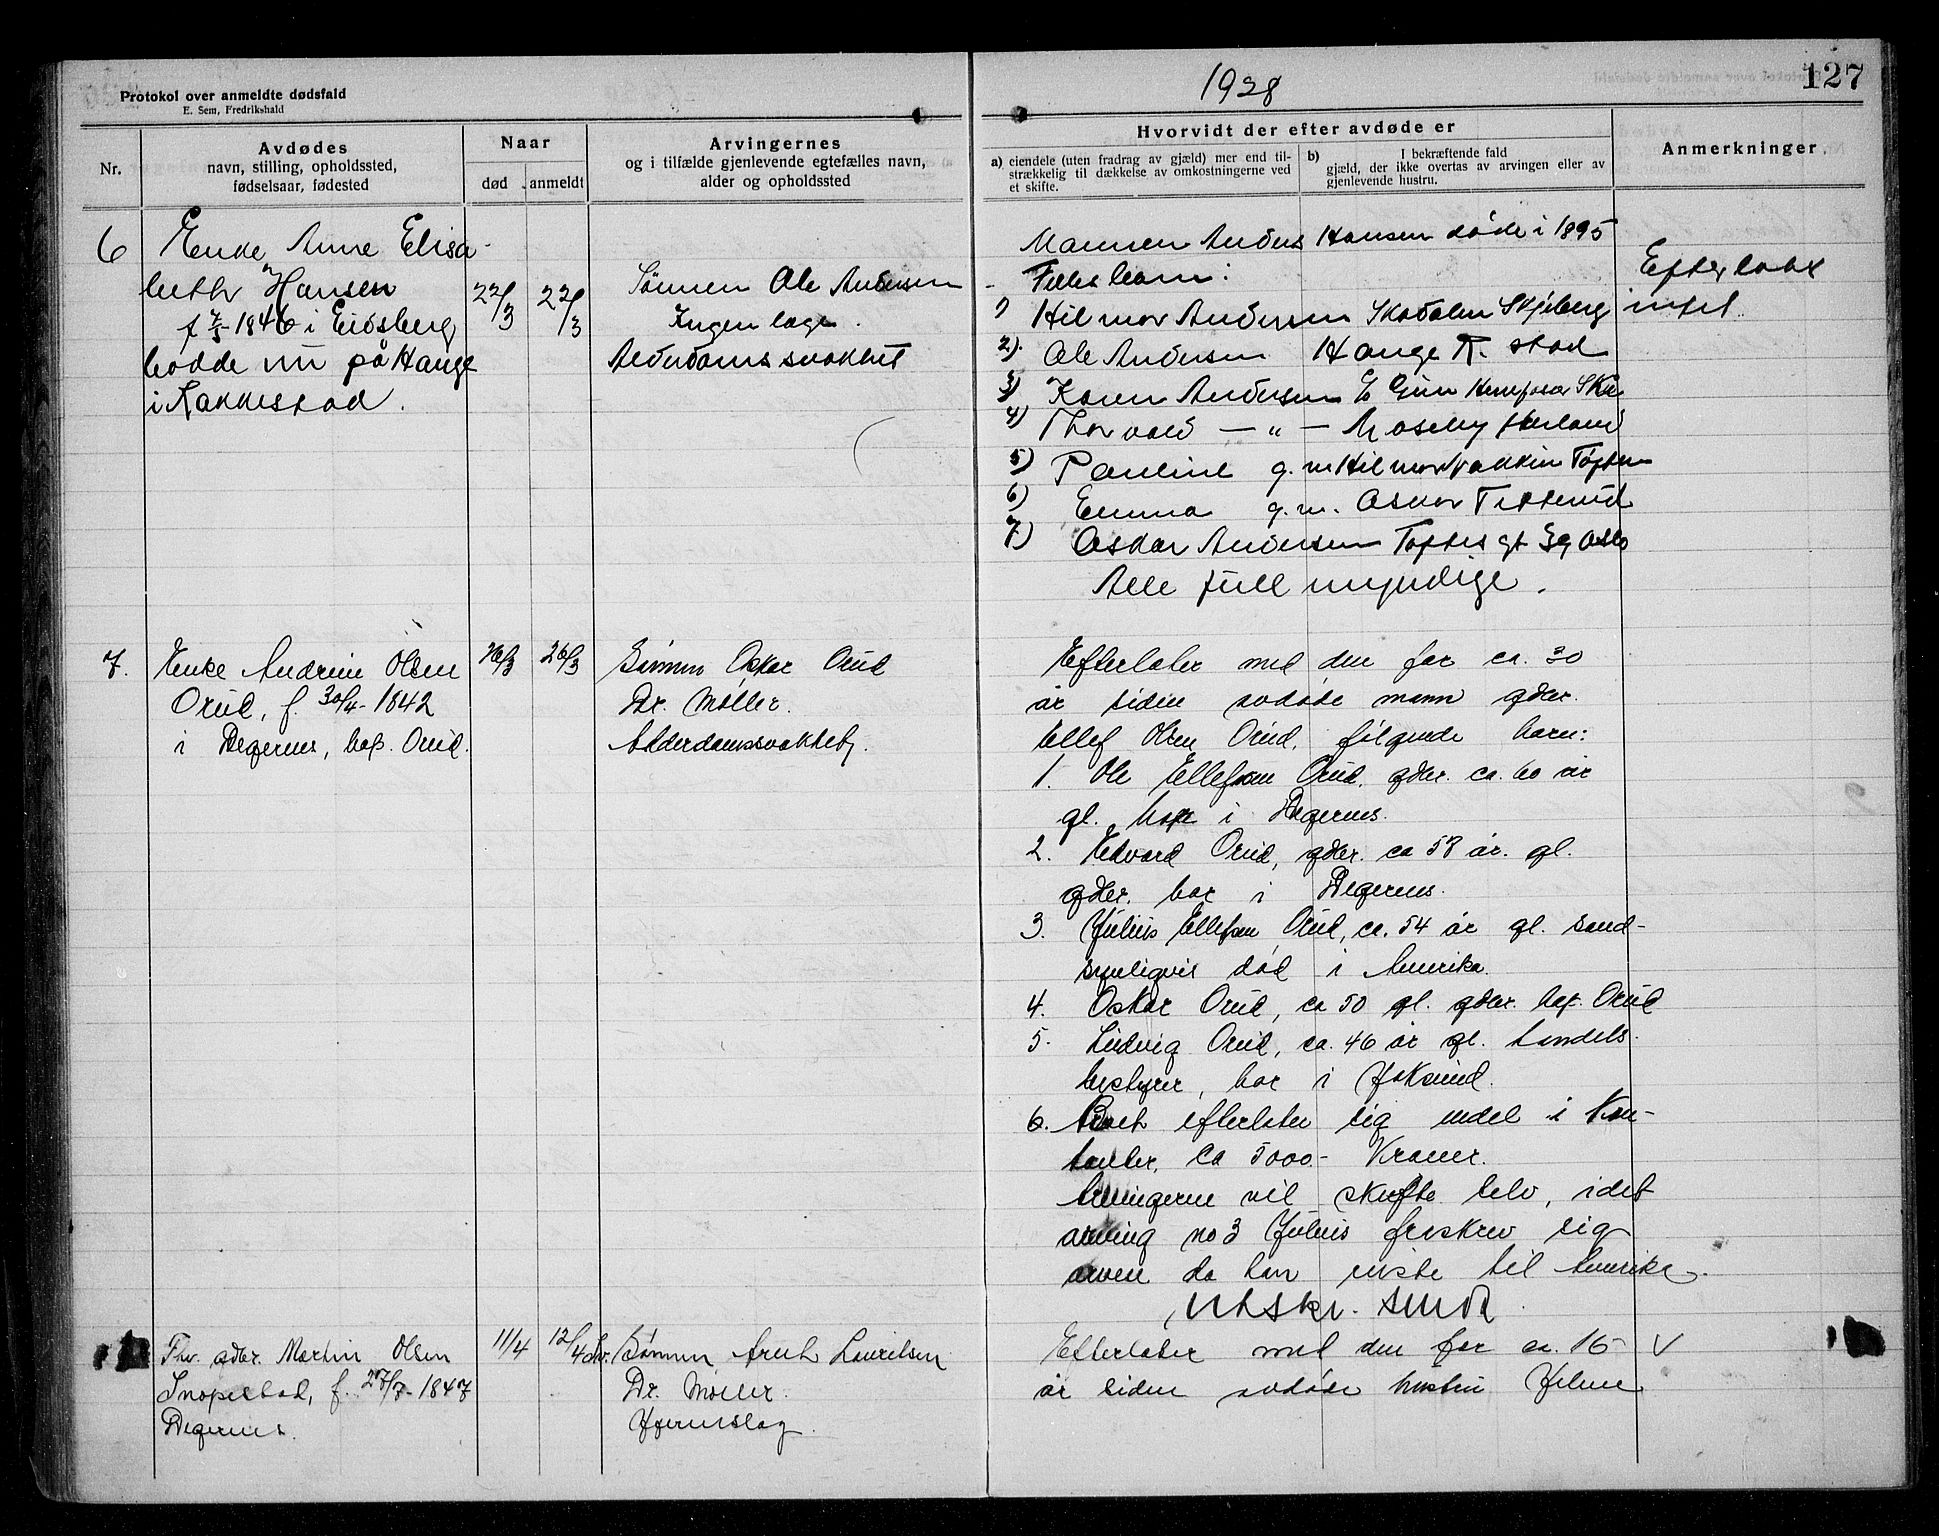 Protokol over anmeldte dødsfald
E. Sem, Fredrikshald
1928
127
Nr.
Avdødes
navn, stilling, opholdssted,
fødselsaar, fødested
Naar
død
anmeldt
Arvingernes
og i tilfælde gjenlevende egtefælles navn,
alder og opholdssted
Hvorvidt der efter avdøde er
a) eiendele (uten fradrag av gjæld) mer end til-
strækkelig til dækkelse av omkostningerne ved
et skifte.
b) I bekræftende fald
gjæld, der ikke overtas av arvingen eller av
gjenlevende hustru.
Anmerkninger.
6
Enke Anne Elisa-
beth Hansen
f 7/5-1846 i Eidsberg
bodde nu på Hauge
i Rakkestad.
22/3
22/3
Sønnen Ole Andersen
Ingen læge.
Alderdomssvakhet
Mannen Anders Hansen døde i 1895
Felles barn:
1) Hilmar Andersen Skodalen Skjeberg
2) Ole Andersen Hauge R.stad
3) Karen Andersen
4) Thorvald — „ — Moseby
5) Pauline g.m. Hilmar
6) Emma g.m. Oskar
7) Oskar Andersen Toftes gt 39 Oslo
Alle full myndige.
Efterlot
intet.
7.
Enke Andrine Olsen
Orud, f. 30/4-1842
i Degernes, bop. Orud.
26/3
26/3
Sønnen Oskar Orud
Dr. Møller.
Alderdomssvakhet.
Efterlater med den for ca. 30
år siden avdøde mann gder.
Ellef Olsen Orud, følgende barn:
1. Ole Ellefsen Orud, gder. ca. 60 år
gl. i Degernes.
2. Edvard Orud, gder. ca 58 år. gl.
gder. bor i Degernes.
3. Julius Ellefsen Orud, ca. 54 år gl. sand-
synligvis død i Amerika.
4. Oskar Orud, ca 50 gl. gder. bop. Orud
5. Ludvig Orud, ca. 46 år gl. handels-
bestyrer, bor i
6. Boet efterlater sig endel i Kon-
tanter, ca 5000.- Kroner.
Arvingerne vil skifte selv, idet
arving no 3 Julius fraskrev sig
arven da han reiste til Amerika.
Utskr. sendt.
Fhv. gdbr. Martin Olsen
f. 27/7-1847
Degernes.
11/4
12/4
Sønnen Arnt Lauritsen
Dr. Møller.
Hjerneslag.
Efterlater med den for ca. 15
år siden avdøde hustru
V